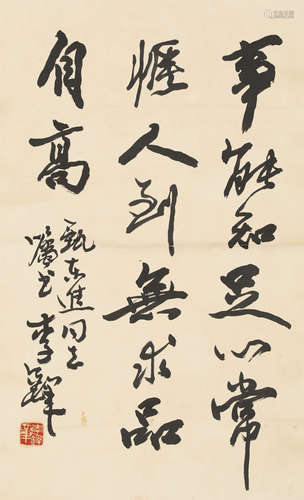 事能知足心常
惬人到無求品
自高
甄東進同志
嘱书 李铎